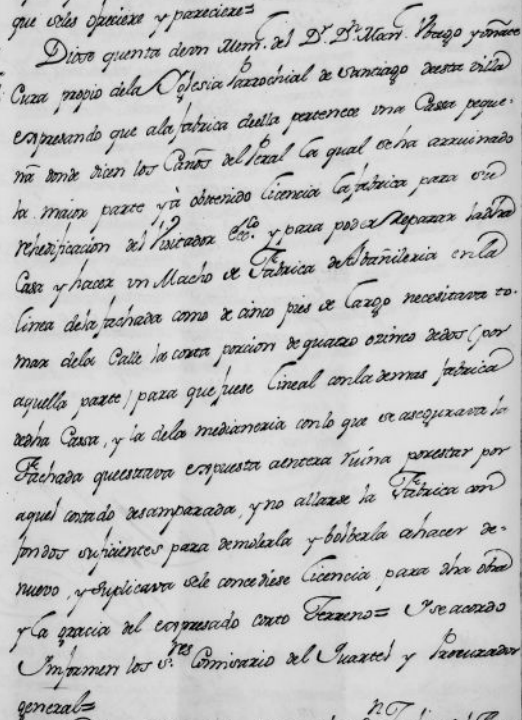 que seles ofreciere y pareciere=
Diose quenta de un Mem.l del D.r D.n Man.l
Cura propio dela Yglesia Parrochial de Santiago desta villa
expresando que ala fabrica de ella pertenece una Cassa peque-
ña donde dicen los Caños del Peral la qual se ha arruinado
la maior parte y à obtenido licencia la fabrica para su
rehedificacion del Visitador ecc.co y para poder Reparar la dha
Casa y hacer un Macho de Fabrica de Albañileria en la
linea dela fachada como de cinco pies de largo necesitava to-
mar dela Calle la corta porcion de quatro o cinco dedos (por
aquella parte) para que fuese lineal con la demas fabrica
dedha Cassa, y la dela medianeria con lo que se asegurava la
Fachada que estava expuesta a entera ruina por estar por
aquel costado desamparada, y no allarse la Fabrica con
fondos suficientes para demolerla y bolberla ahacer de-
nuevo, y suplicava sele concediese licencia para dha obra
y la gracia del expresado corto Terreno= Y se acordo
Informen los s.res Comisario del Quartel y Procurador
general=